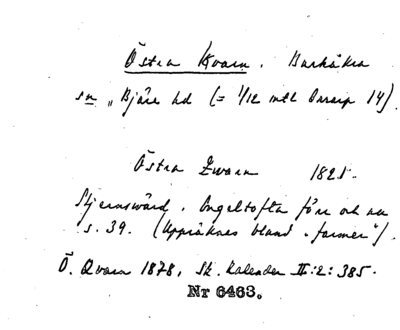 Östra Kvarn. Barkåkra
sn, Bjäre hd (= 1/12 mtl Onsarp 14).
Östra Zwarn 1825.
Stjernswärd. Engeltofta förr och nu
s. 39. (Uppräknas bland "farmer").
Ö. Qvarn 1878, Sk. Kalender II:2:385.
Nr 6463.